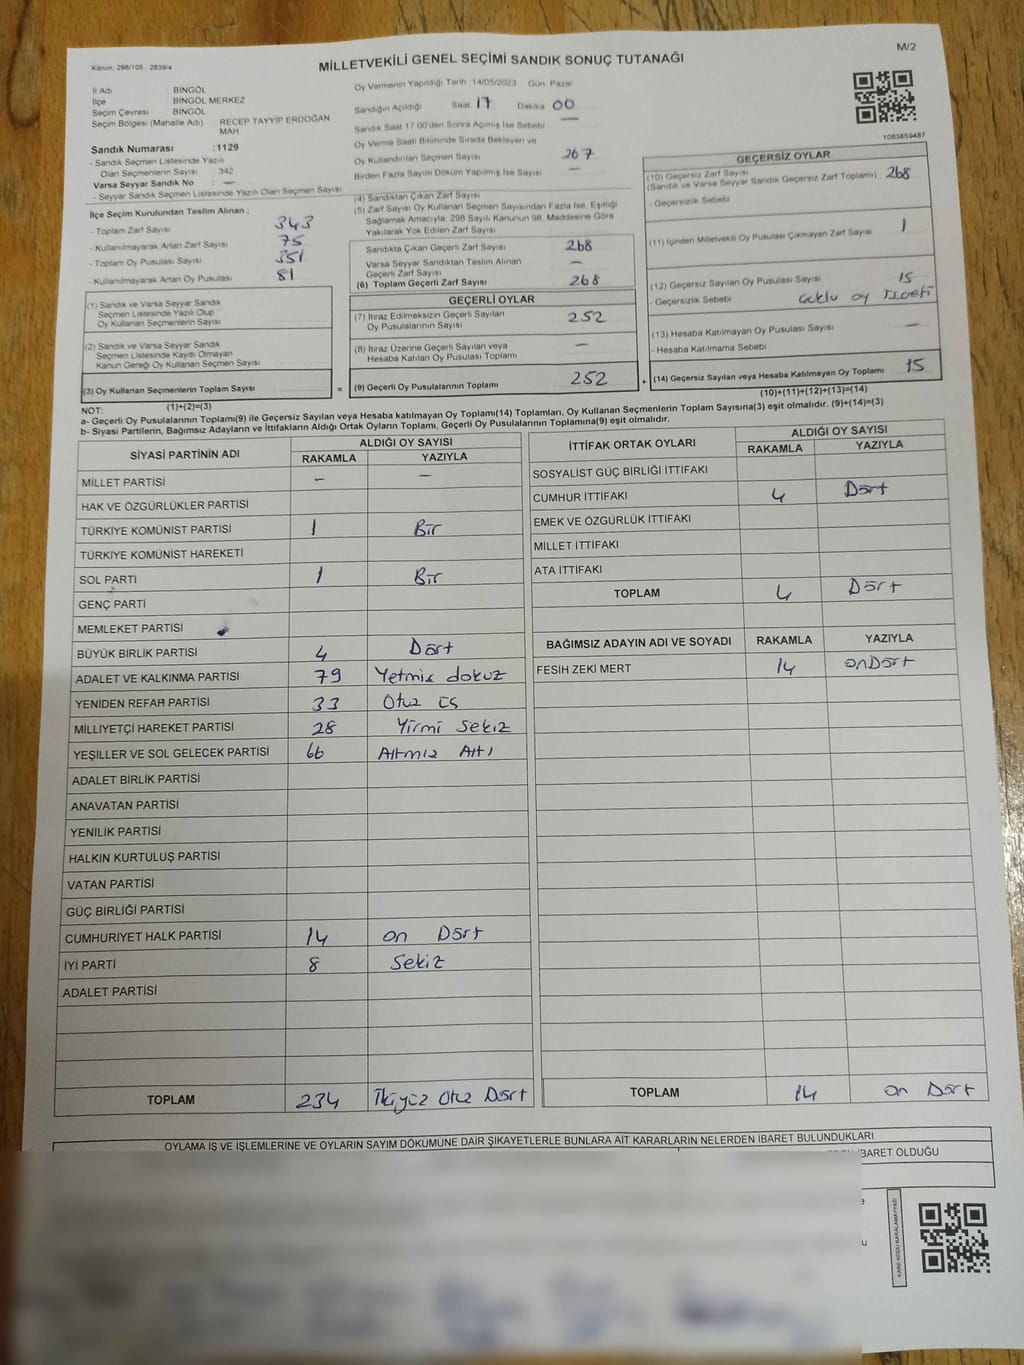 M/2
Kanun: 298/105 , 2839/4
MİLLETVEKİLİ GENEL SEÇİMİ SANDIK SONUÇ TUTANAĞI
İl Adı BİNGÖL
İlçe BİNGÖL MERKEZ
Seçim Çevresi BİNGÖL
Seçim Bölgesi (Mahalle Adı) : RECEP TAYYIP ERDOĞAN MAH
Sandık Numarası :1129
- Sandık Seçmen Listesinde Yazılı
Olan Seçmenlerin Sayısı 342
Varsa Seyyar Sandık No : —
- Seyyar Sandık Seçmen Listesinde Yazılı Olan Seçmen Sayısı
Oy Vermenin Yapıldığı Tarih 14/05/2023 Gün Pazar
Sandığın Açıldığı Saat 17 Dakika 00
Sandık Saat 17:00'den Sonra Açımış İse Sebebi —
Oy Verme Saati Bitiminde Sırada Bekleyen ve
Oy Kullandırılan Seçmen Sayısı 267
Birden Fazla Sayım Döküm Yapılmış İse Sayısı —
1083859487
İlçe Seçim Kurulundan Teslim Alınan ;
- Toplam Zarf Sayısı 343
- Kullanılmayarak Artan Zarf Sayısı 75
- Toplam Oy Pusulası Sayısı 351
- Kullanılmayarak Artan Oy Pusulası 81
(1) Sandık ve Varsa Seyyar Sandık
Seçmen Listesinde Yazılı Olup
Oy Kullanan Seçmenlerin Sayısı
(2) Sandık ve Varsa Seyyar Sandık
Seçmen Listesinde Kayıtlı Olmayan
Kanun Gereği Oy Kullanan Seçmen Sayısı
(3) Oy Kullanan Seçmenlerin Toplam Sayısı =
(1)+(2)=(3)
(4) Sandıktan Çıkan Zarf Sayısı
(5) Zarf Sayısı Oy Kullanan Seçmen Sayısından Fazla İse, Eşitliği
Sağlamak Amacıyla, 298 Sayılı Kanunun 98. Maddesine Göre
Yakılarak Yok Edilen Zarf Sayısı
Sandıkta Çıkan Geçerli Zarf Sayısı 268
Varsa Seyyar Sandıktan Teslim Alınan
Geçerli Zarf Sayısı —
(6) Toplam Geçerli Zarf Sayısı 268
GEÇERLİ OYLAR
(7) İtiraz Edilmeksizin Geçerli Sayılan
Oy Pusulalarının Sayısı 252
(8) İtiraz Üzerine Geçerli Sayılan veya
Hesaba Katılan Oy Pusulası Toplamı —
(9) Geçerli Oy Pusulalarının Toplamı 252 +
GEÇERSİZ OYLAR
(10) Geçersiz Zarf Sayısı 268
(Sandık ve Varsa Seyyar Sandık Geçersiz Zarf Toplamı)
- Geçersizlik Sebebi
(11) İçinden Milletvekili Oy Pusulası Çıkmayan Zarf Sayısı 1
(12) Geçersiz Sayılan Oy Pusulası Sayısı 15
- Geçersizlik Sebebi oy
(13) Hesaba Katılmayan Oy Pusulası Sayısı —
- Hesaba Katılmama Sebebi
(14) Geçersiz Sayılan veya Hesaba Katılmayan Oy Toplamı 15
(10)+(11)+(12)+(13)=(14)
NOT:
a- Geçerli Oy Pusulalarının Toplamı(9) ile Geçersiz Sayılan veya Hesaba katılmayan Oy Toplamı(14) Toplamları, Oy Kullanan Seçmenlerin Toplam Sayısına(3) eşit olmalıdır. (9)+(14)=(3)
b- Siyasi Partilerin, Bağımsız Adayların ve İttifakların Aldığı Ortak Oyların Toplamı, Geçerli Oy Pusulalarının Toplamına(9) eşit olmalıdır.
SİYASİ PARTİNİN ADI ALDIĞI OY SAYISI
RAKAMLA YAZIYLA
MİLLET PARTİSİ — —
HAK VE ÖZGÜRLÜKLER PARTİSİ
TÜRKİYE KOMÜNİST PARTİSİ 1 Bir
TÜRKİYE KOMÜNİST HAREKETİ
SOL PARTİ 1 Bir
GENÇ PARTİ
MEMLEKET PARTİSİ
BÜYÜK BİRLİK PARTİSİ 4 Dört
ADALET VE KALKINMA PARTİSİ 79 Yetmiş dokuz
YENİDEN REFAH PARTİSİ 33 Otuz üç
MİLLİYETÇİ HAREKET PARTİSİ 28 Yirmi Sekiz
YEŞİLLER VE SOL GELECEK PARTİSİ 66 Altmış Altı
ADALET BİRLİK PARTİSİ
ANAVATAN PARTİSİ
YENİLİK PARTİSİ
HALKIN KURTULUŞ PARTİSİ
VATAN PARTİSİ
GÜÇ BİRLİĞİ PARTİSİ
CUMHURİYET HALK PARTİSİ 14 on Dört
İYİ PARTİ 8 Sekiz
ADALET PARTİSİ
TOPLAM 234 İkiyüz Otuz Dört
İTTİFAK ORTAK OYLARI ALDIĞI OY SAYISI
RAKAMLA YAZIYLA
SOSYALİST GÜÇ BİRLİĞİ İTTİFAKI
CUMHUR İTTİFAKI 4 Dört
EMEK VE ÖZGÜRLÜK İTTİFAKI
MİLLET İTTİFAKI
ATA İTTİFAKI
TOPLAM 4 Dört
BAĞIMSIZ ADAYIN ADI VE SOYADI RAKAMLA YAZIYLA
FESİH ZEKİ MERT 14 onDört
TOPLAM 14 on Dört
OYLAMA İŞ VE İŞLEMLERİNE VE OYLARIN SAYIM DÖKÜMÜNE DAİR ŞİKAYETLERLE BUNLARA AİT KARARLARIN NELERDEN İBARET BULUNDUKLARI
BARET OLDUĞU